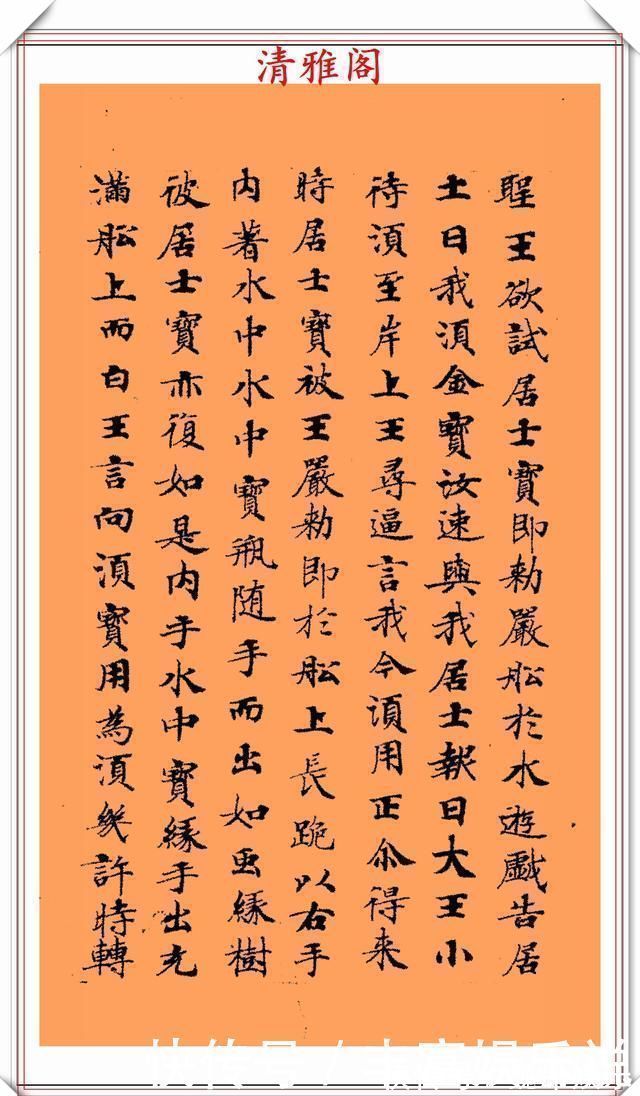 清雅阁
聖王欲試居士寶即勑嚴舩於水遊戲告居
士曰我湏金寶汝速與我居士報曰大王小
待湏至岸上王尋逼言我今湏用正尒得来
時居士寶被王嚴勑即於舩上長跪以右手
内著水中水中寶瓶随手而出如虫緣樹
彼居士寶亦復如是内手水中寶緣手出充
滿舩上而白王言向湏寶用為湏幾許時轉